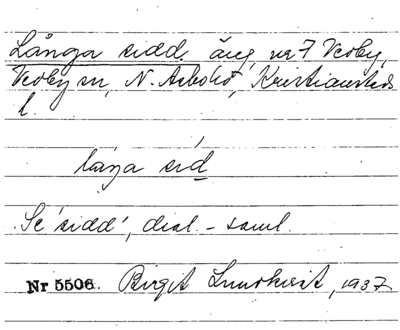 Långa sidd. äng, nr 7 Verby,
Verby sn, N. Asbo hd, Kristianstads
l.
låŋa sid
Se 'sidd', dial.-saml.
Nr 5506. Birgit Lundkvist, 1937